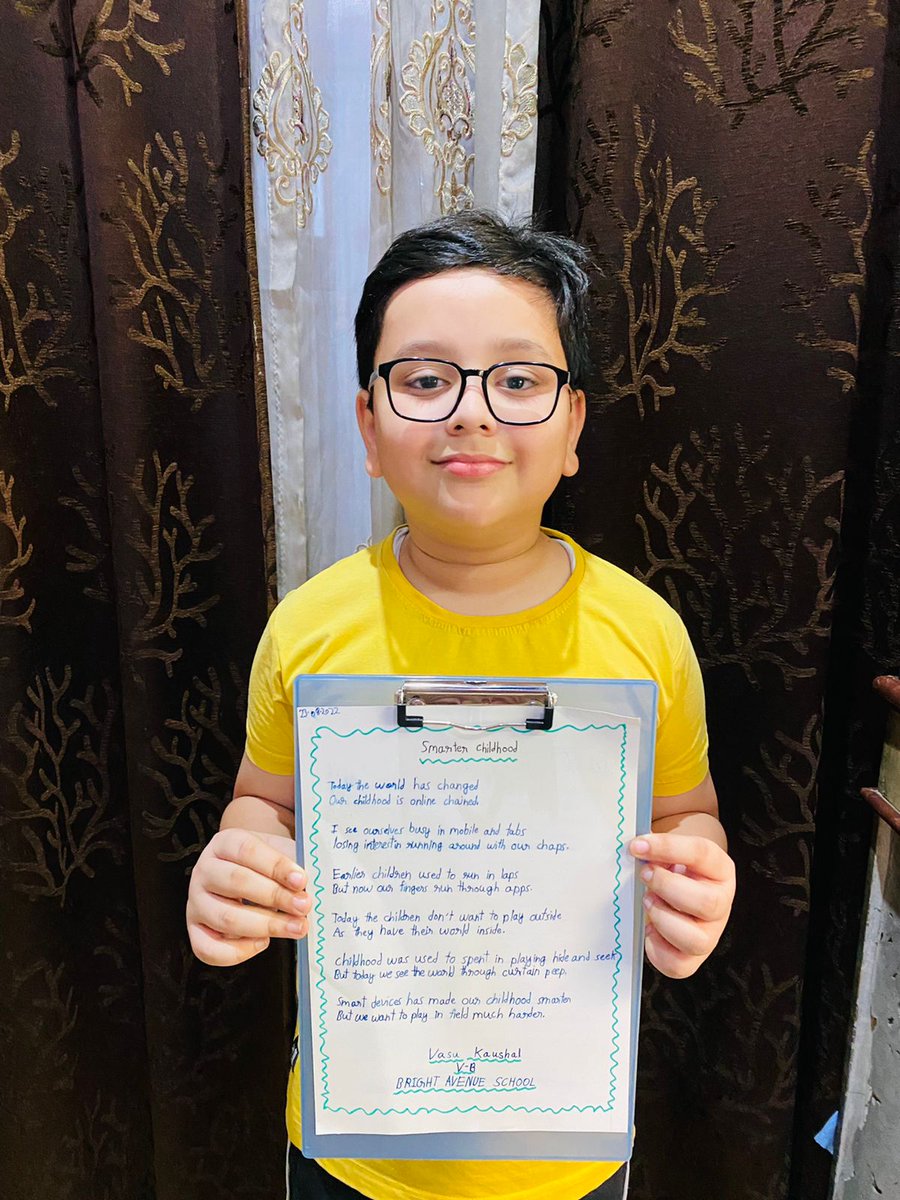 Smarter Childhood
Today the world has changed
Our childhood is online chained.
I see ourselves busy in mobile and tabs
losing interest in running around with our chaps.
Earlier children used to run in laps
But now our fingers run through apps.
Today the children don't want to play outside
As they have their world inside.
childhood was used to spent in playing hide and seek
But today we see the world through curtain peep.
Smart devices has made our childhood smarter
But we want to play in field much harder.
Vasu Kaushal
V-B
BRIGHT AVENUE SCHOOL